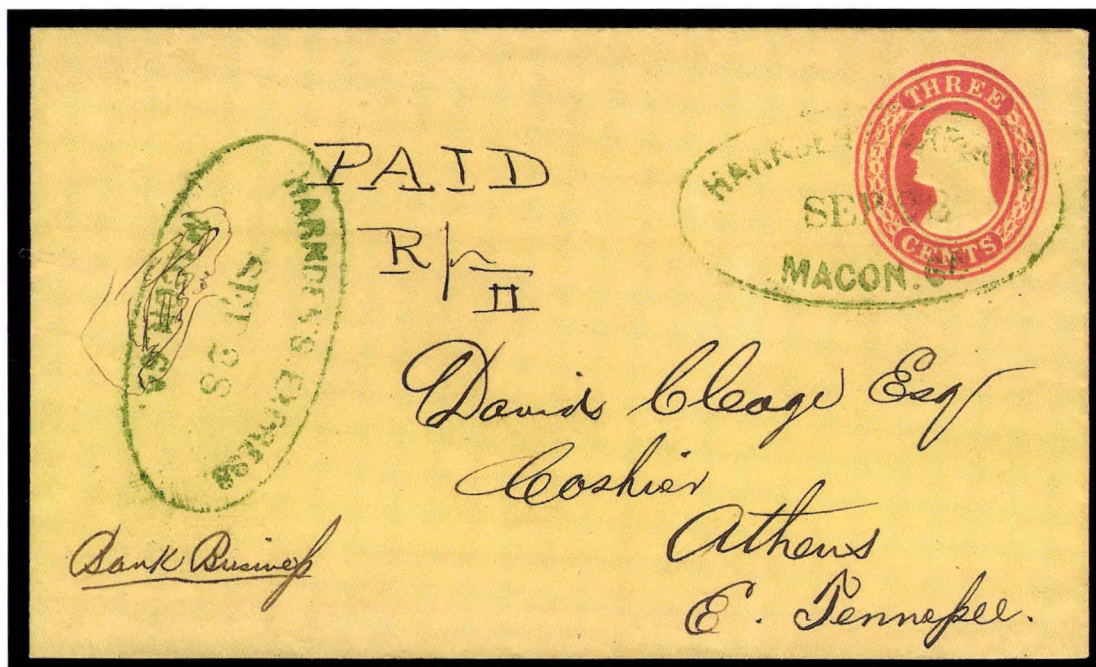 THREE
CENTS
HARNDEN'S EXPRESS
SEP 28
MACON. GA
PAID
HARNDEN'S EXPRESS
SEP 28
MACON. GA
David Cleage Esqr
Cashier
Athens
E. Tennessee.
Bank Business